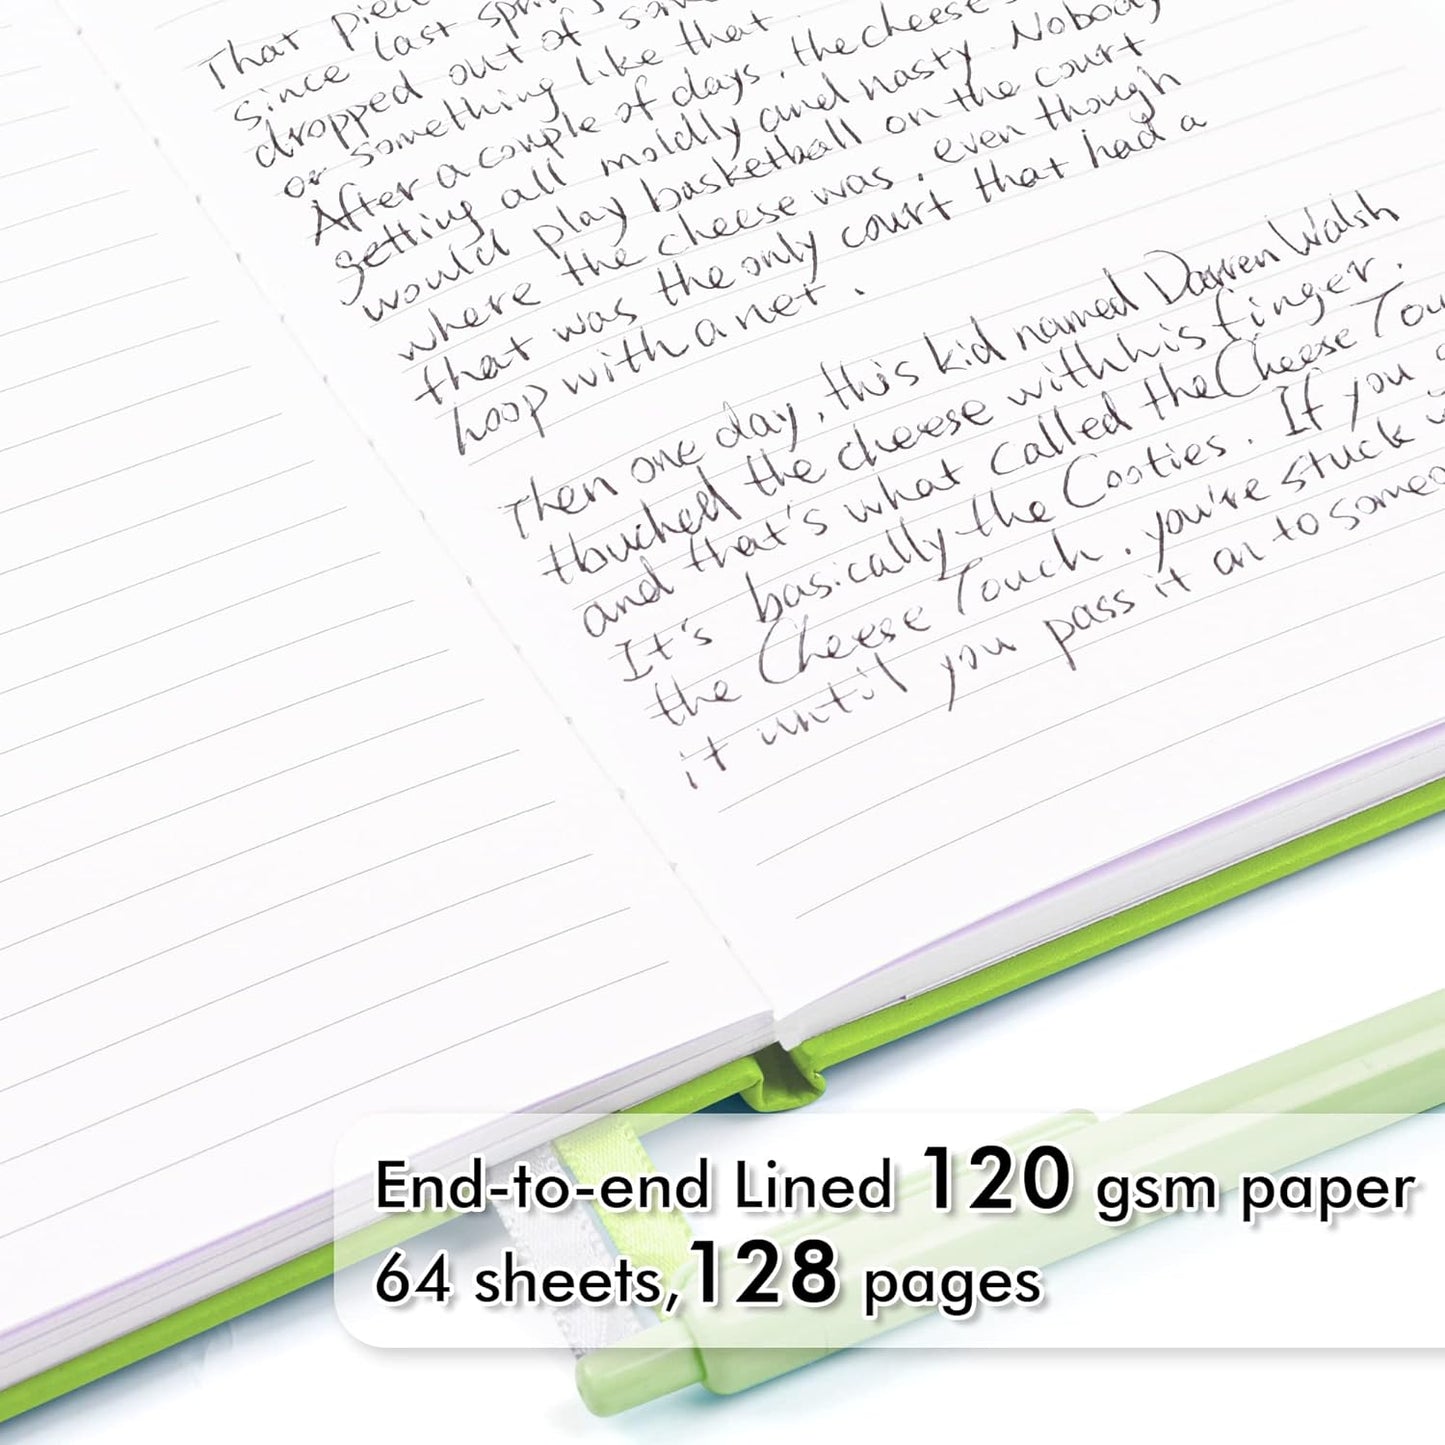 That piec
since last spring
dropped out of
or something like that
After a couple of days, the cheese s
getting all moldly and nasty. Nobody
would play basketball on the court
where the cheese was, even though
that was the only court that had a
hoop with a net.
Then one day, this kid named Darren Walsh
touched the cheese with his finger.
and that's what called the Cheese Tou
It's basically the Cooties. If you
the Cheese Touch, you're stuck
it until you pass it on to someo
End-to-end Lined 120 gsm paper
64 sheets,128 pages